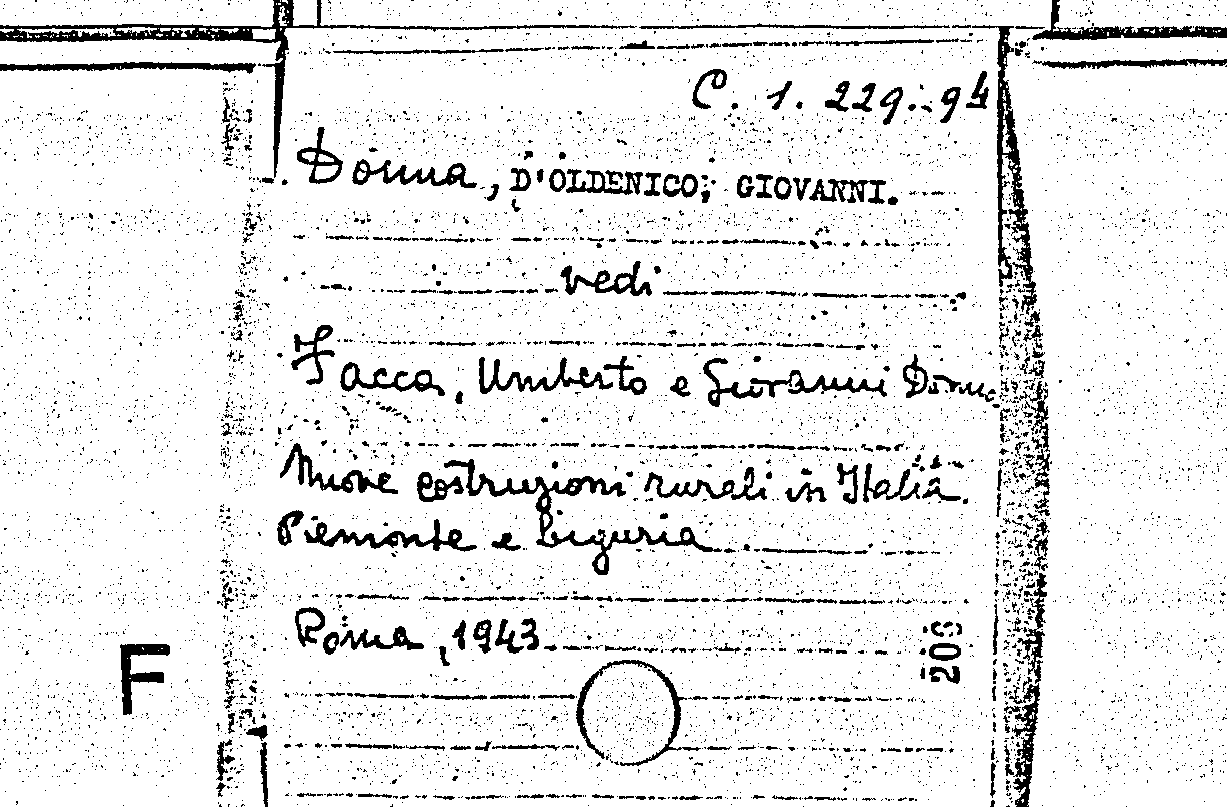 C. 1. 229.-94
Donna, D'OLDENICO, GIOVANNI.
vedi
Facca, Umberto e Giovanni Donna
Nuove costruzioni rurali in Italia.
Piemonte e Liguria.
Roma, 1943
F